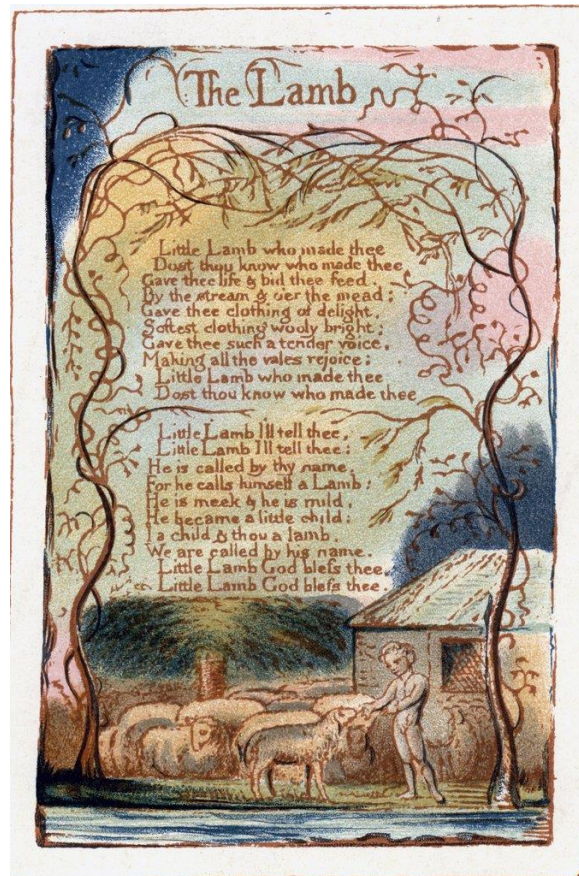 The Lamb
Little Lamb who made thee
Dost thou know who made thee
Gave thee life & bid thee feed.
By the stream & o'er the mead;
Gave thee clothing of delight,
Softest clothing wooly bright;
Gave thee such a tender voice,
Making all the vales rejoice;
Little Lamb who made thee
Dost thou know who made thee
Little Lamb I'll tell thee,
Little Lamb I'll tell thee;
He is called by thy name,
For he calls himself a Lamb:
He is meek & he is mild,
He became a little child:
I a child & thou a lamb,
We are called by his name.
Little Lamb God bleſs thee.
Little Lamb God bleſs thee